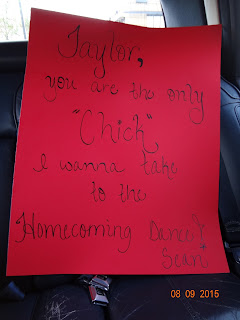 Taylor,
you are the only
"Chick"
I wanna take
to the
Homecoming Dance?
Sean
08 09 2015